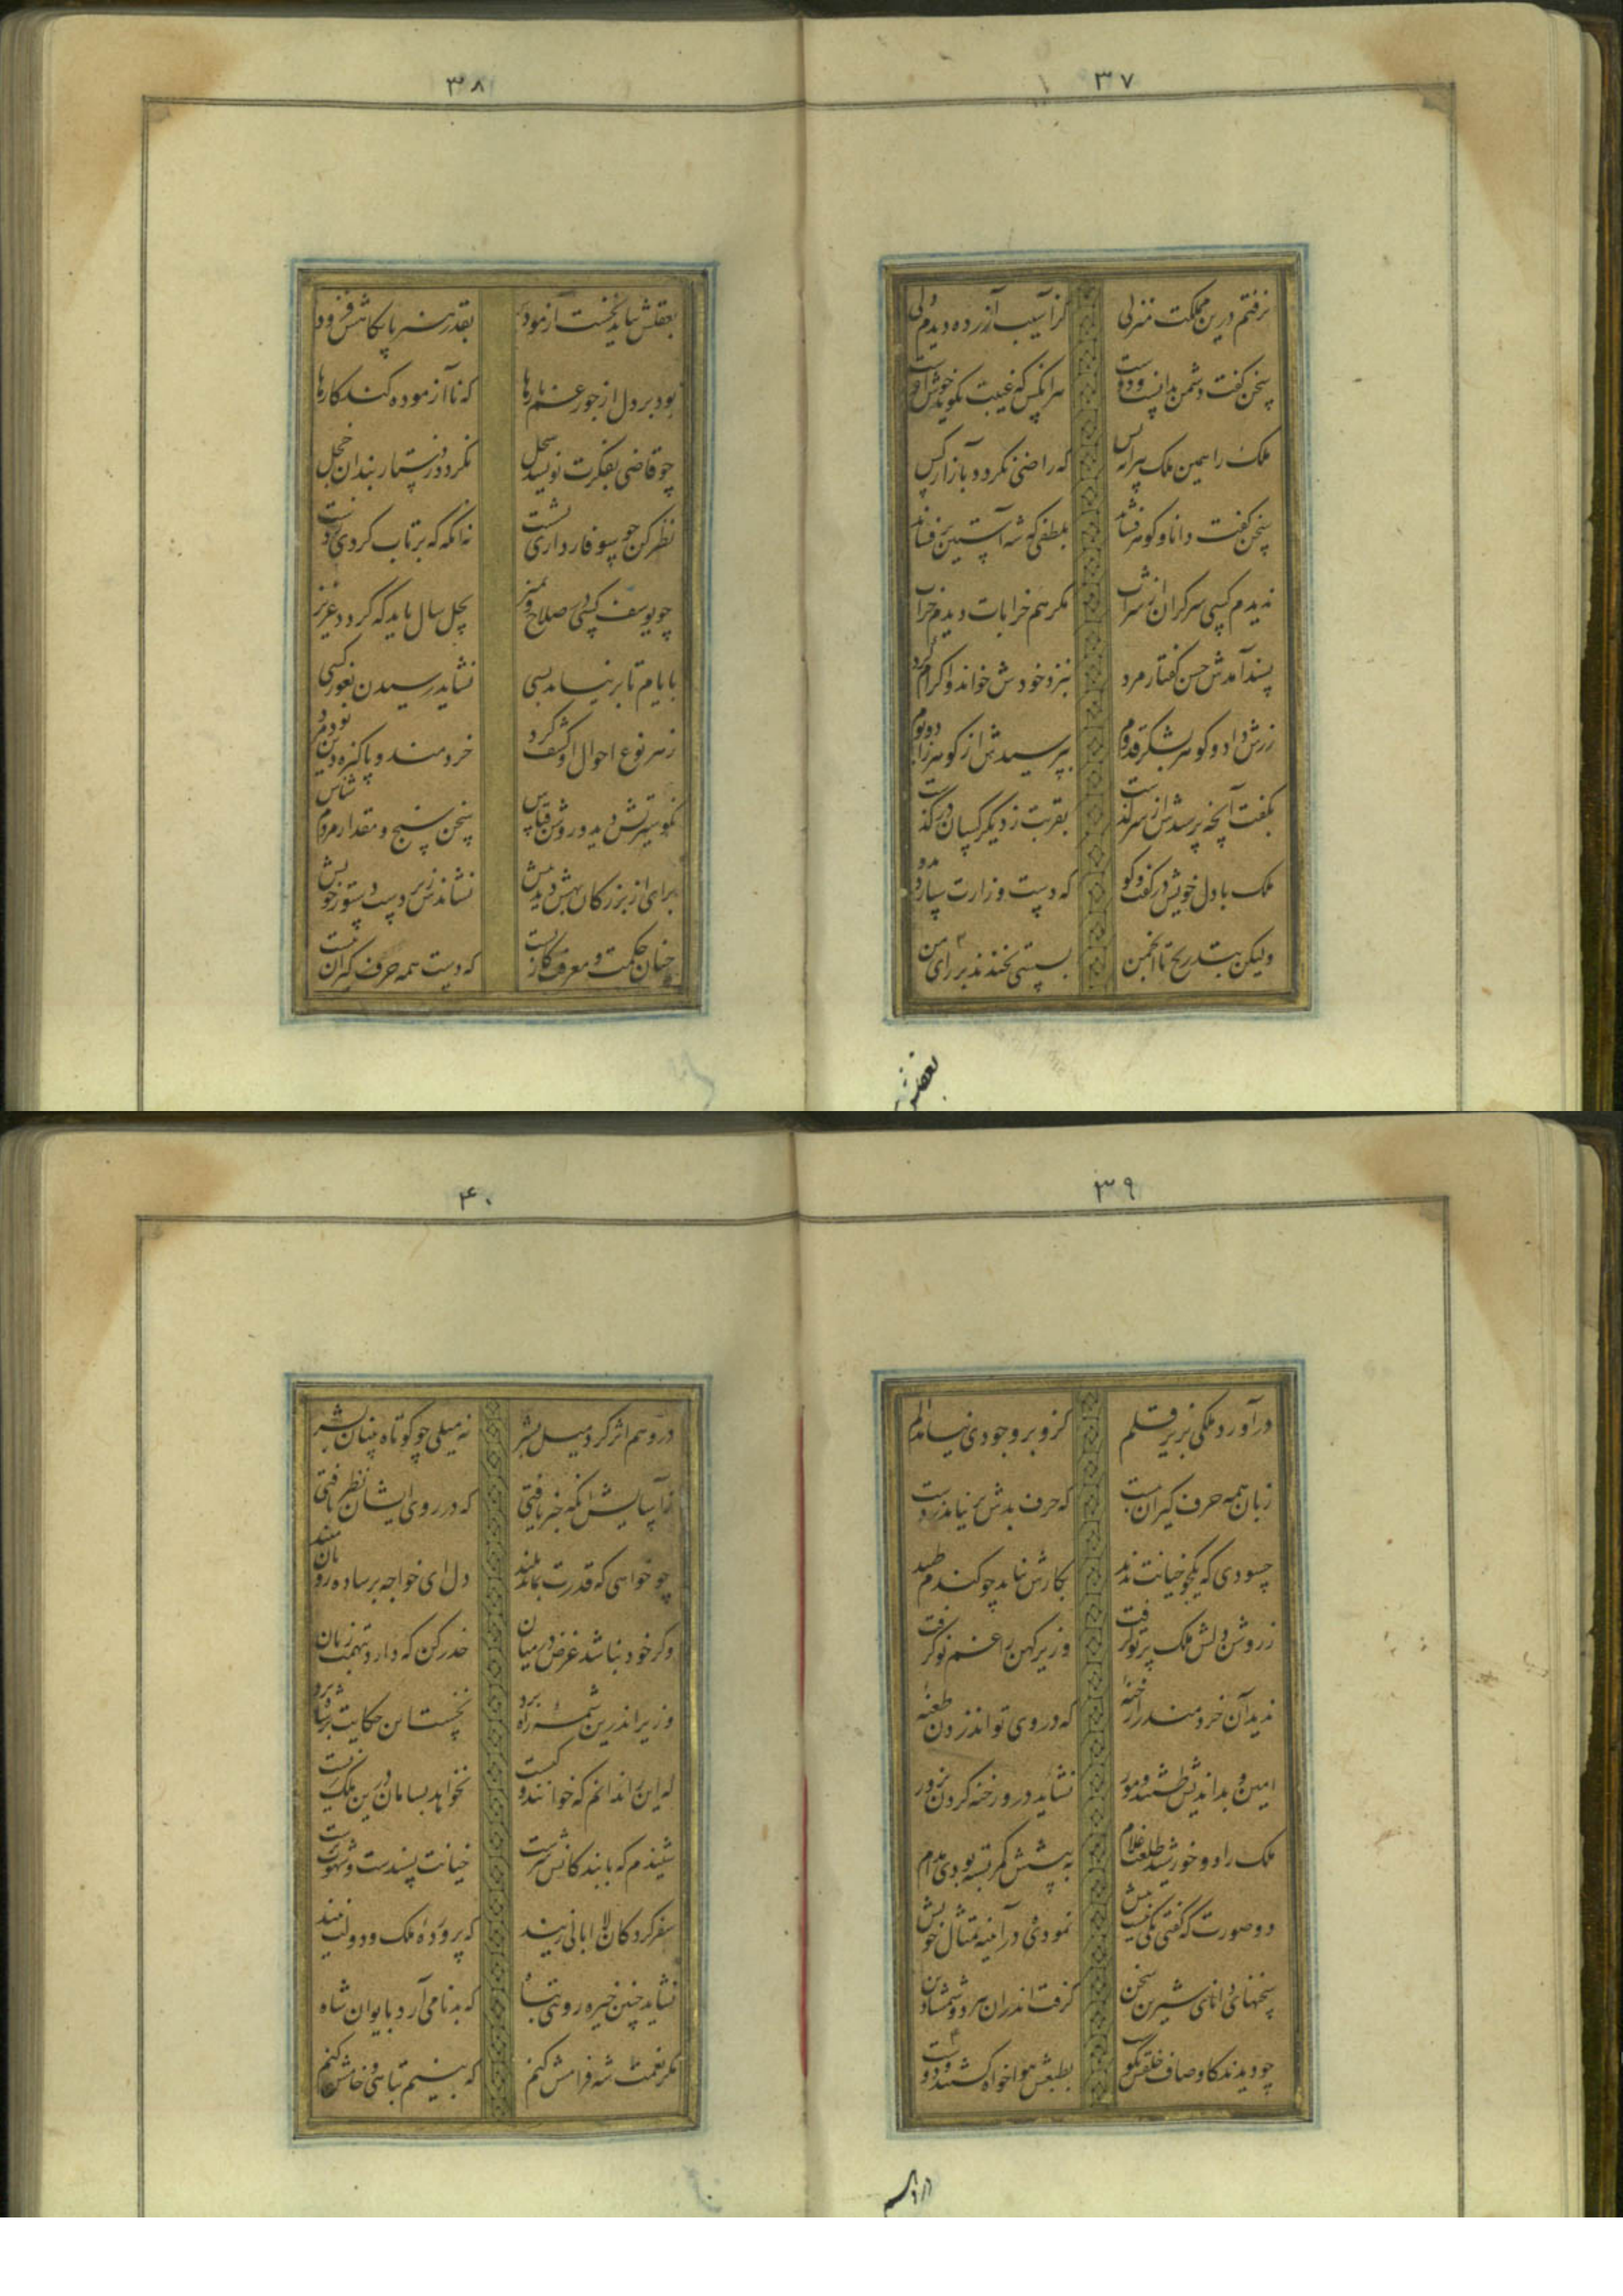 ۳۷
نرفتم درین مملکت منزلی
کز آسیب آزرده دیدم دلی
سخن گفت و دشمن بدانست و دوست
هر انکس که غیبت نکوید خوش اوست
ملک را همین ملک پیرایه بس
که راضی نکردد بآزار کس
سخن گفت دانا و کوهر فشاند
بلطفی که شه آستین برفشاند
ندیدم کسی سرکران از شراب
مکر هم خرابات دیدم خراب
پسند آمدش حسن کفتار مرد
بنزد خودش خواند و اکرام کرد
زرش داد و کوهر بشکر قدوم
بپرسیدش از کوهر و زاد بوم
بگفت آنچه پرسیدش از سرگذشت
بقربت ز دیگر کسان درگذشت
ملک با دل خویش در گفت و کو
که دست وزارت سپارد بدو
ولیکن بتدریج تا انجمن
بسستی نخندند بر رای من
بعقلش
۳۸
بعقلش بباید نخست آزمود
بقدر هنر پایکاهش فزود
بود بر دل از جور غم بارها
که ناآزموده کند کارها
چو قاضی بفکرت نویسد سجل
نکردد ز دستار بندان خجل
نظر کن چو سوفار داری بشست
نه انکه که پرتاب کردی ز دست
چو یوسف کسی در صلاح و تمیز
بچل سال باید که گردد عزیز
بایام تا برنیاید بسی
نشاید رسیدن بغور کسی
ز هر نوع احوال او کشف کرد
خردمند و پاکیزه دین بود مرد
نکو سیرتش دید و روشن قیاس
سخن سنج و مقدار مردم شناس
برای از بزرکان بهش دید و بیش
نشاندش زبر دست دستور خویش
چنان حکمت و معرفت کار بست
که دست همه حرف گیران ببست
۳۹
درآورد ملکی بزیر قلم
کزو بر وجودی نیامد الم
زبان همه حرف کیران ببست
که حرف بدش بر نیامد ز دست
حسودی که یکجو خیانت ندید
بکارش نیامد چو کندم طپید
ز روشن دلش ملک پرتو گرفت
وزیر کهن را غم نو گرفت
ندید آن خردمند را رخنهٔ
که در وی تواند زدن طعنهٔ
امین و بداندیش طشتند و مور
نشاید درو رخنه کردن بزور
ملک را دو خورشید طلعت غلام
به پیشش کمر بسته بودی مدام
دو صورت که گفتی یکی نیست بیش
نمودی در آئینه تمثال خویش
سخنهای دانای شیرین سخن
گرفت اندران هر دو شمشاد بن
چو دیدند کاوصاف خلقش نکوست
بطبعش هواخواه گشتند و دوست
۴۰
درو هم اثر کرد میل بشر
نه میلی چو کوتاه بینان بشر
از آسایش انکه خبر یافتی
که در روی ایشان نظر یافتی
چو خواهی که قدرت بماند بلند
دل ای خواجه بر ساده رویان مبند
وکر خود نباشد غرض در میان
حذر کن که دارد تهمت زیان
وزیر اندرین شمهٔ راه برد
بخبث این حکایت بر شاه برد
که این را ندانم که خوانند و کیست
نخواهد بسامان درین ملک زیست
شنیدم که با بندکانش سرست
خیانت پسندست و شهوت پرست
سفر کردکان لاابالی زیند
که پروردهٔ ملک و دولت نیند
نشاید چنین خیره روی تباه
که بدنامی آرد بایوان شاه
مکر نعمت شه فرامش کنم
که بینم تباهی و خامش کنم